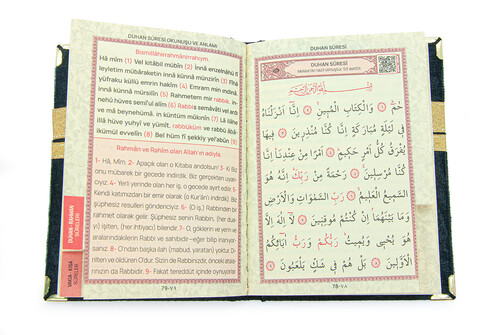 DUHAN SÛRESİ OKUNUŞU VE ANLAMI
Bismillâhirrahmânirrahıym.
Hâ mîm (1) Vel kitâbil mübîn (2) İnnâ enzelnâhü fî
leyletim mübâraketin innâ künnâ münzirîn (3) Fîhâ
yüfraku küllü emrin hakîm (4) Emram min ındinâ
innâ künnâ mürsilîn (5) Rahmetem mir rabbik,
innehû hüves semî'ul alîm (6) Rabbis semâvâti vel ardı
ve mâ beynehümâ, in küntüm mûkınîn (7) Lâ ilâhe
illâ hüve yuhyî ve yümît, rabbüküm ve rabbü âbâ-
ikümül evvelîn (8) Bel hüm fî şekkiy yel'abûn (9)
Rahmân ve Rahîm olan Allah'ın adıyla
1- Hâ, Mîm. 2- Apaçık olan o Kitaba andolsun! 3- Ki Biz
onu mübarek bir gecede indirdik. Biz gerçekten uyarı-
cıyız. 4- Yerli yerinde olan her iş, o gecede ayırt edilir. 5-
Kendi katımızdan bir emir olarak (o Kur'ân'ı indirdik). Biz
şüphesiz resulleri göndericiyiz. 6- O (iş,) Rabbinden bir
rahmet olarak gelir. Şüphesiz senin Rabbin, (her du-
yuşu) işiten, (her ihtiyacı) bilendir. 7- O, göklerin ve yerin ve
aralarındakilerin Rabbi ve sahibidir
8- O'ndan başka ilah (mabud, yaratan) yoktur. Di-
rilten ve öldüren O'dur. Sizin de Rabbinizdir, önceki ataları-
nızın da Rabbidir. 9- Fakat tereddüt içinde oynuyorlar.
79-٧٨
DUHAN - RAHMAN
SÛRELERİ
VAKIA - KISA
SÛRELER
DUHAN SÛRESİ
DUHAN SÛRESİ
حٰمٓ ﴿١﴾ وَالْكِتَابِ الْمُبِينِ ﴿٢﴾ اِنَّٓا اَنْزَلْنَاهُ
فِي لَيْلَةٍ مُبَارَكَةٍ اِنَّا كُنَّا مُنْذِرِينَ ﴿٣﴾ فِيهَا
يُفْرَقُ كُلُّ اَمْرٍ حَكِيمٍ ﴿٤﴾ اَمْرًا مِنْ عِنْدِنَا اِنَّا
كُنَّا مُرْسِلِينَ ﴿٥﴾ رَحْمَةً مِنْ رَبِّكَ اِنَّهُ هُوَ
السَّمِيعُ الْعَلِيمُ ﴿٦﴾ رَبِّ السَّمٰوَاتِ وَالْاَرْضِ
وَمَا بَيْنَهُمَا اِنْ كُنْتُمْ مُوقِنِينَ ﴿٧﴾ لَٓا اِلٰهَ اِلَّا
هُوَ يُحْيِي وَيُمِيتُ رَبُّكُمْ وَرَبُّ اٰبَٓائِكُمُ
الْاَوَّلِينَ ﴿٨﴾ بَلْ هُمْ فِي شَكٍّ يَلْعَبُونَ ﴿٩﴾
78-٧٨